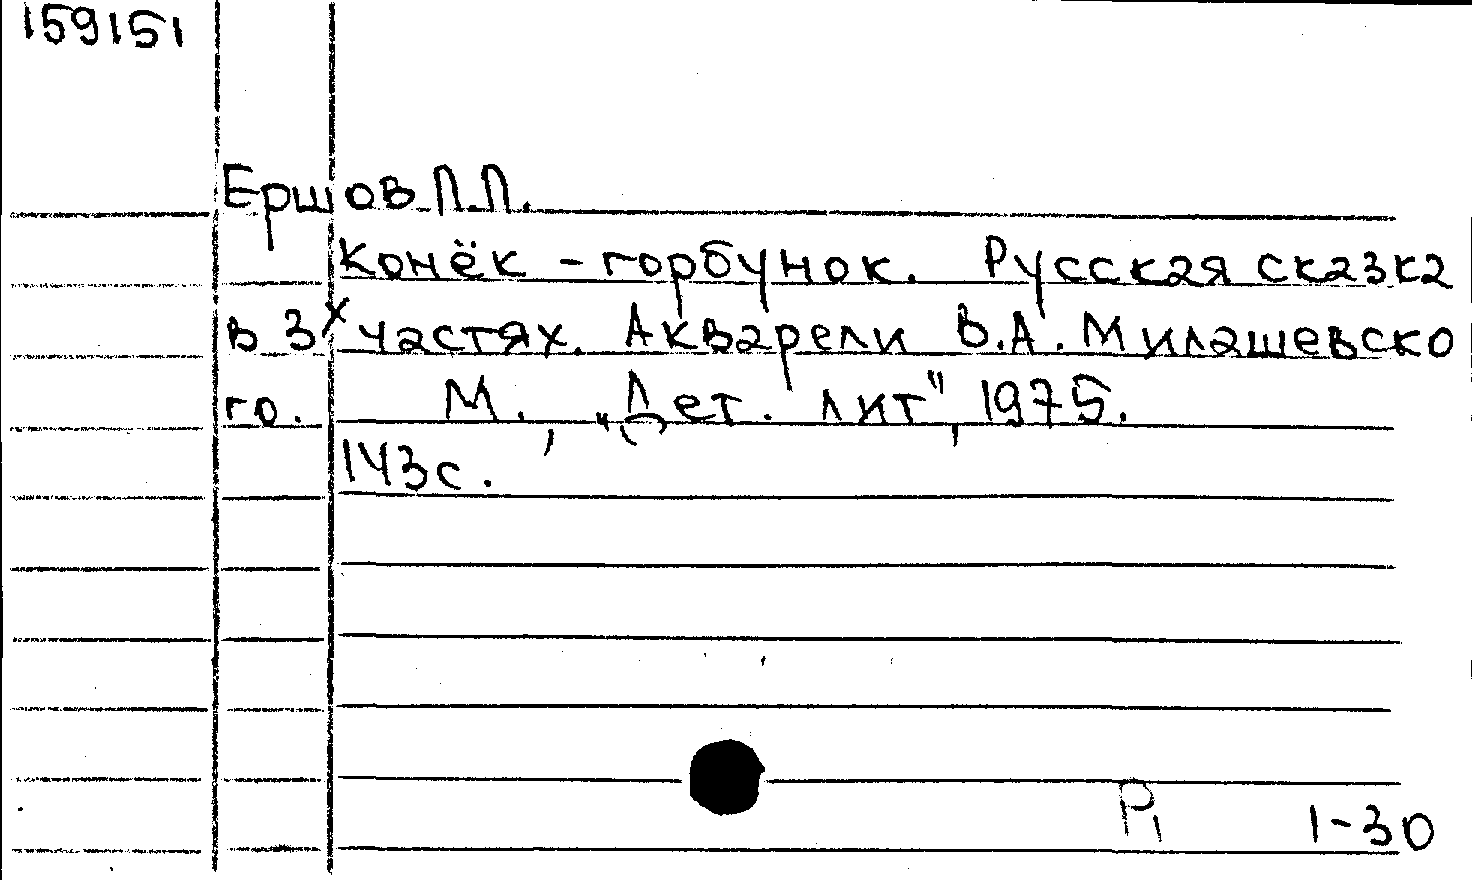 159151
Ершов П.П.
Конёк - горбунок. Русская сказка
в 3х частях. Акварели В.А. Милашевско
го. М., „Дет. лит", 1975.
143с.
Р1 1-30